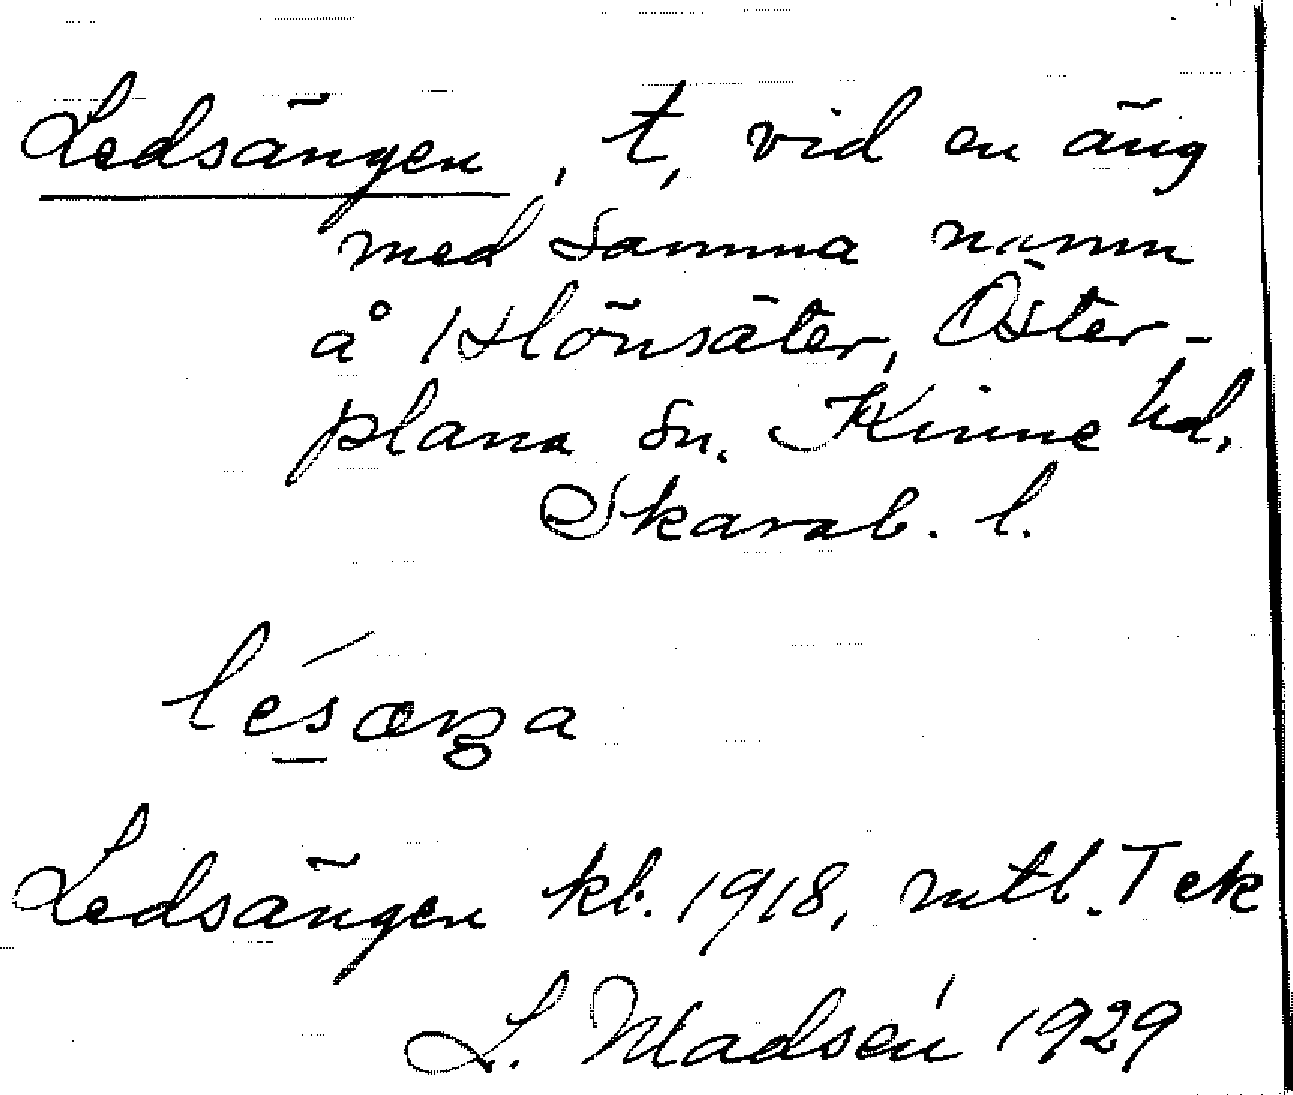 Ledsängen, t, vid en äng
med samma namn
å Hönsäter, Öster-
plana sn. Kinne hd,
Skarab. l.
Ledsängen kb. 1918, mtl. Tek
L. Madsén 1929